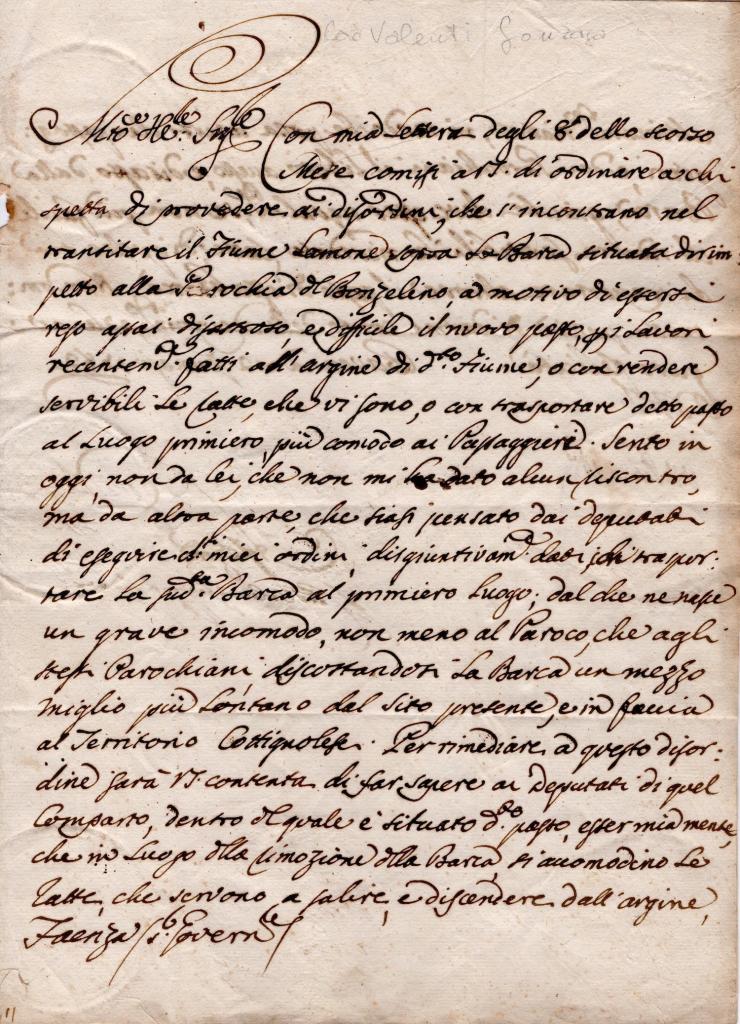 Card Valenti Gonzaga
Mto ce Ile: Sigle Con mia Lettera degli 8. dello scorso
Mese comisi a VS. di ordinare a chi
spetta di provedere ai disordini, che s'incontrano nel
transitare il Fiume Lamone sopra la Barca situata dirim-
petto alla Parochia di Bonzelino, a motivo di essersi
reso assai disastroso, e difficile il nuovo passo, pi Lavori
recentemte. fatti all'argine di dto. Fiume, o con rendere
servibili le Catte, che vi sono, o con trasportare detto passo
al Luogo primiero, più comodo ai Passaggieri. Sento in
oggi, non da lei, che non mi ha dato alcun riscontro,
ma da altra parte, che siasi pensato dai deputati
di eseguire di miei ordini, disgiuntivamte. dati, di traspor-
tare la sudta. Barca al primiero Luogo; dal che ne nasce
un grave incomodo, non meno al Paroco, che agli
stessi Parochiani, discostandosi la Barca un mezzo
miglio più Lontano dal sito presente, e in faccia
al Territorio Cottignolese. Per rimediare a questo disor-
dine sarà VS. contenta di far sapere ai deputati di quel
Comparto, dentro del quale è situato do. passo, esser mia mente,
che in Luogo della rimozione della Barca, si accomodino le
Catte, che servono a salire, e discendere dall'argine,
Faenza Sr. Governre